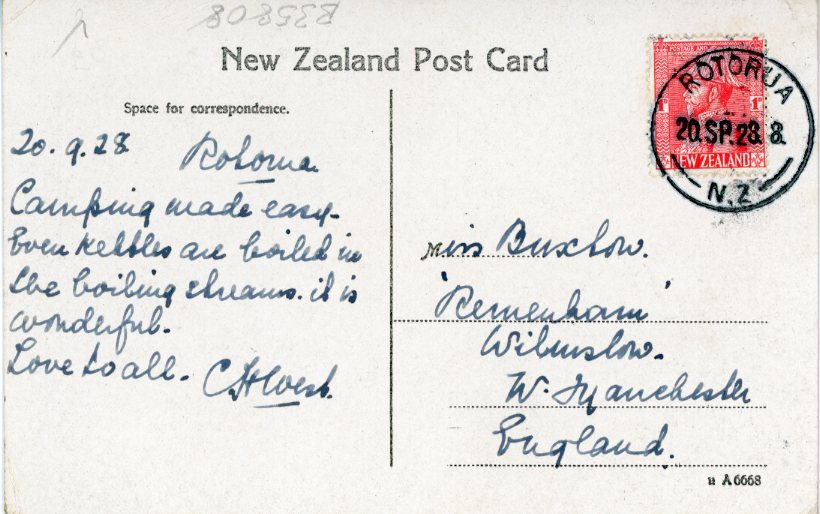 B35808
New Zealand Post Card
Space for correspondence.
POSTAGE AND
1D 1D
NEW ZEALAND
ROTORUA
20.SP.28. 8.
N.Z
20.9.28 Rotorua
Camping made easy-
Even kettles are boiled in
the boiling streams. it is
wonderful.
Love to all. C H West.
Miss Buxton.
'Remenham'
Wilmslow.
Nr. Manchester
England.
u A6668